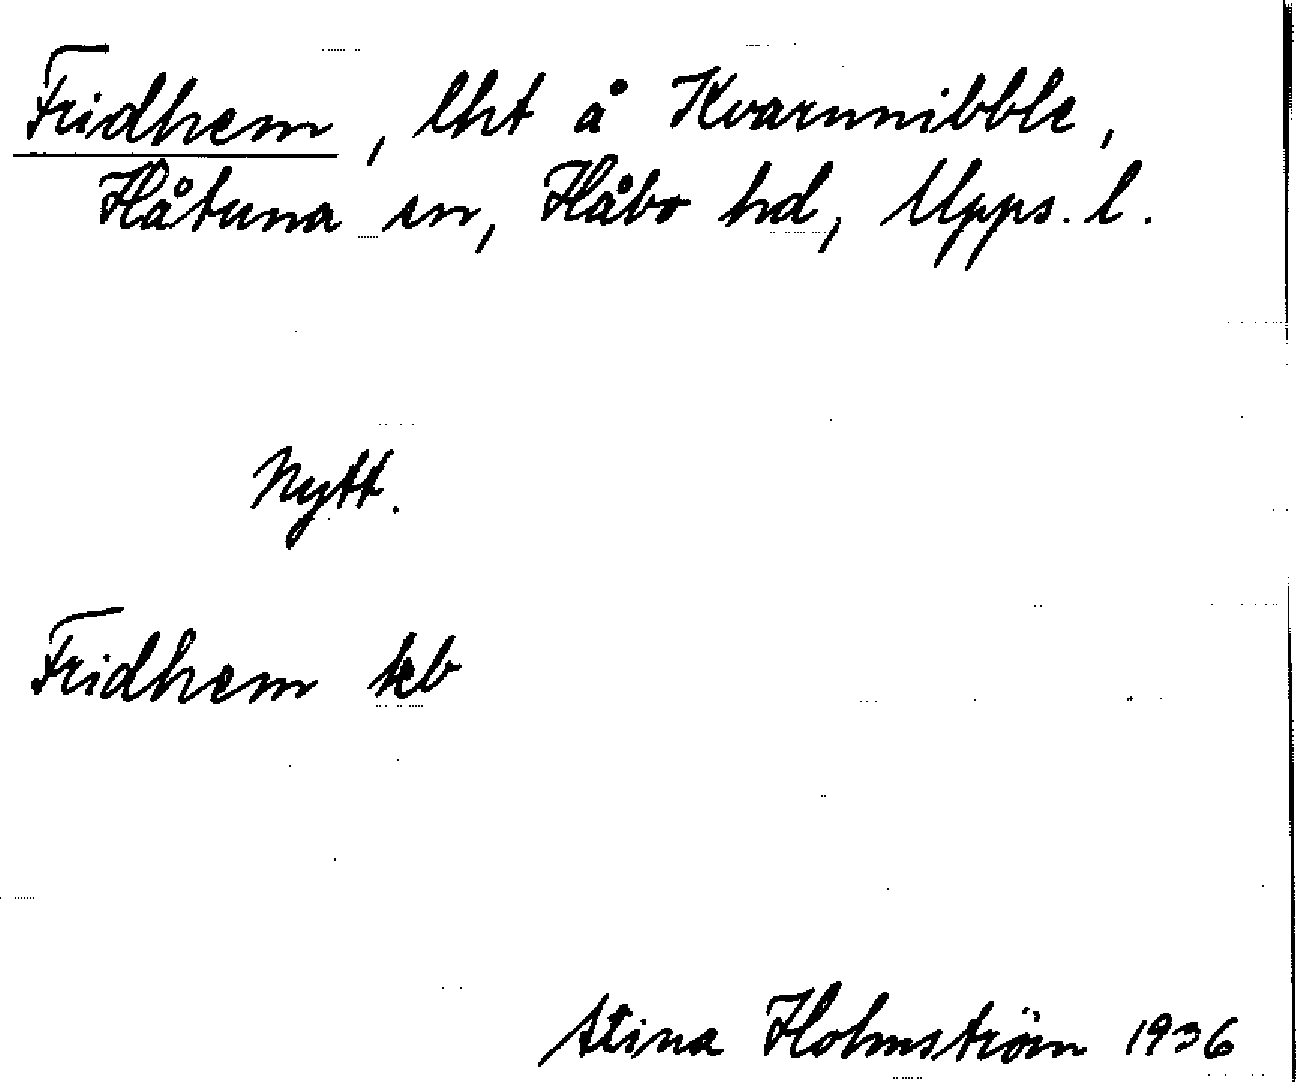 Fridhem, lht å Kvarnnibble,
Håtuna sn, Håbo hd, Upps. l.
Nytt.
Fridhem kb
Stina Holmström 1936